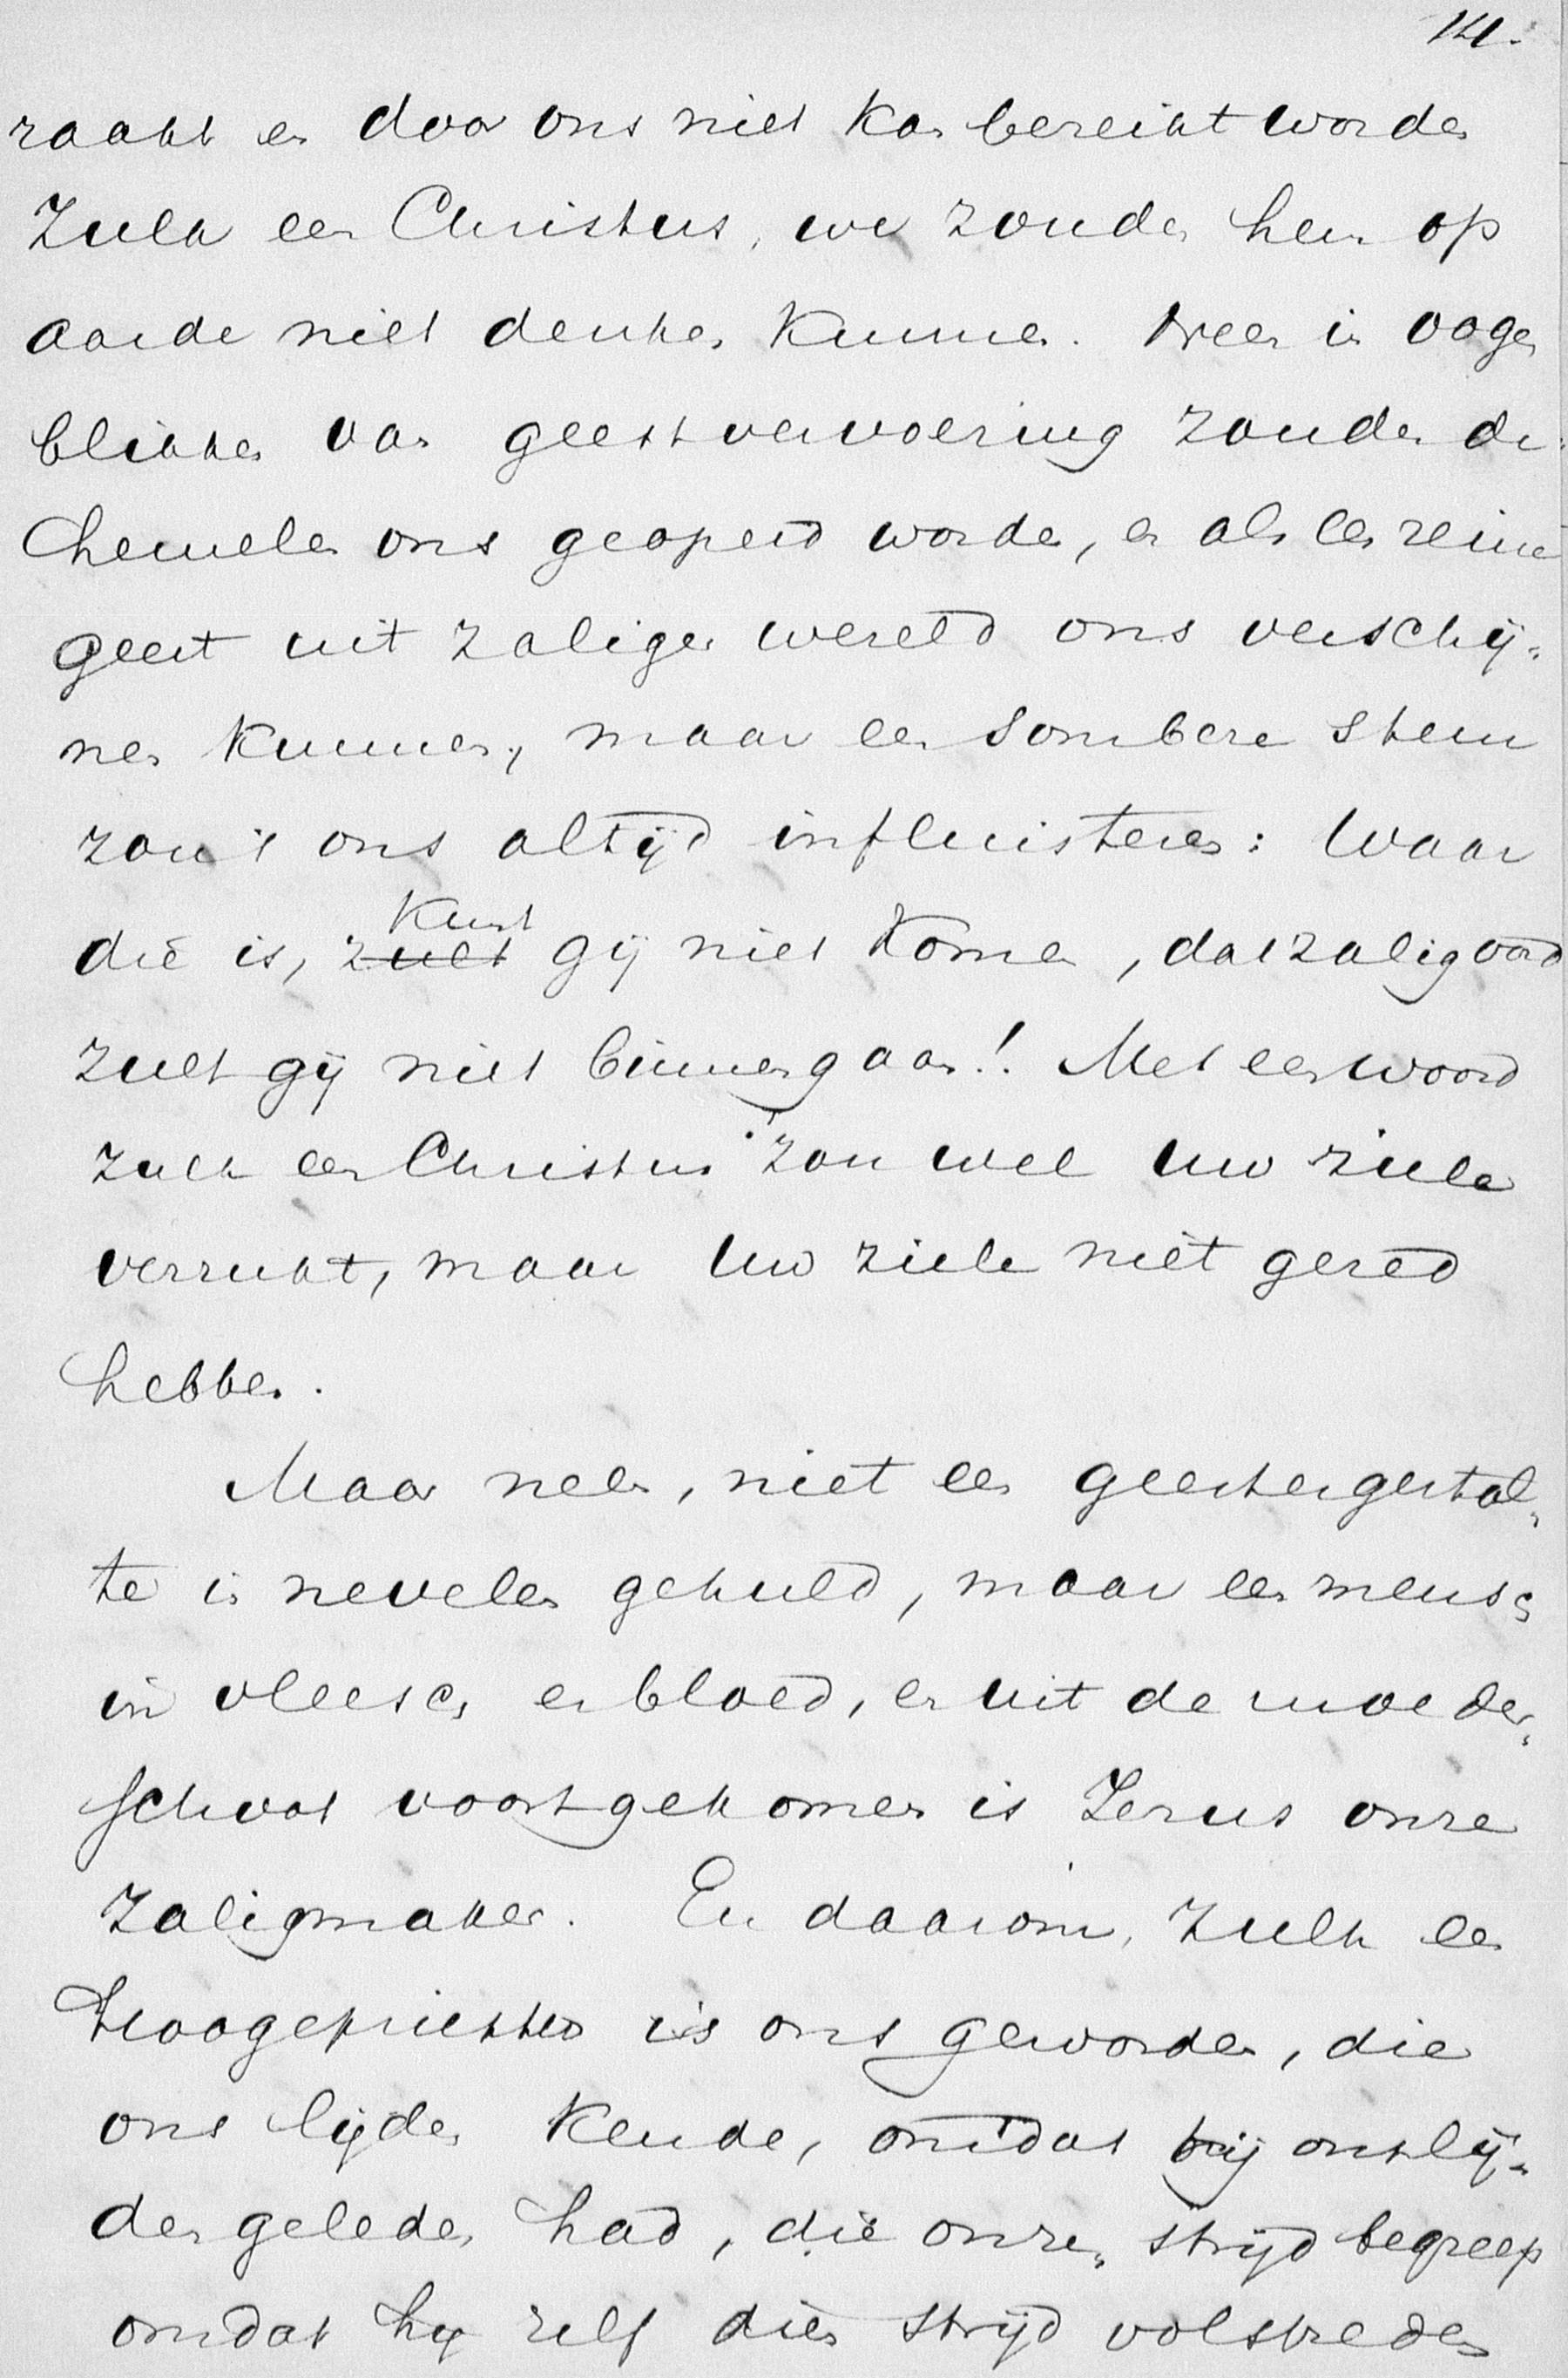 14.
raakt en door ons niet kan bereikt worden
Zulk een Christus, we zouden hem op
aarde niet denken kunnen. Neen in oogen
blikken van geestvervoering zouden de
hemelen ons geopend worden, en als een reine
geest uit zaliger wereld ons verschij-
nen kunnen, maar een sombere stem
zou 't ons altijd influisteren: Waar
die is, zult kunt gij niet komen, dat zalig oord
zult gij niet binnengaan! Met een woord
zulk een Christus zou wel uw ziele
verrukt, maar uw ziele niet gered
hebben.
Maar neen, niet een geestengestal-
te in nevelen gehuld, maar een mensch
in vleesch en bloed, en uit de moeder-
schoot voortgekomen is Jezus onze
Zaligmaker. En daarom, zulk een
Hoogepriester is ons geworden, die
ons lijden kende, omdat hij ons lij-
den geleden had, die onzen strijd begreep
omdat hij zelf dien strijd volstreden